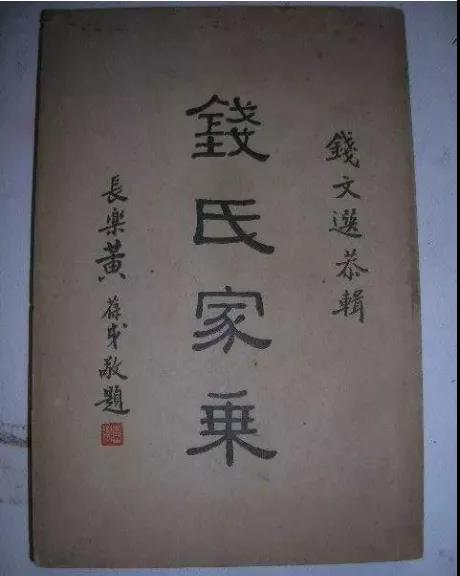 錢文選恭輯
錢氏家乗
長樂黃葆戉敬題